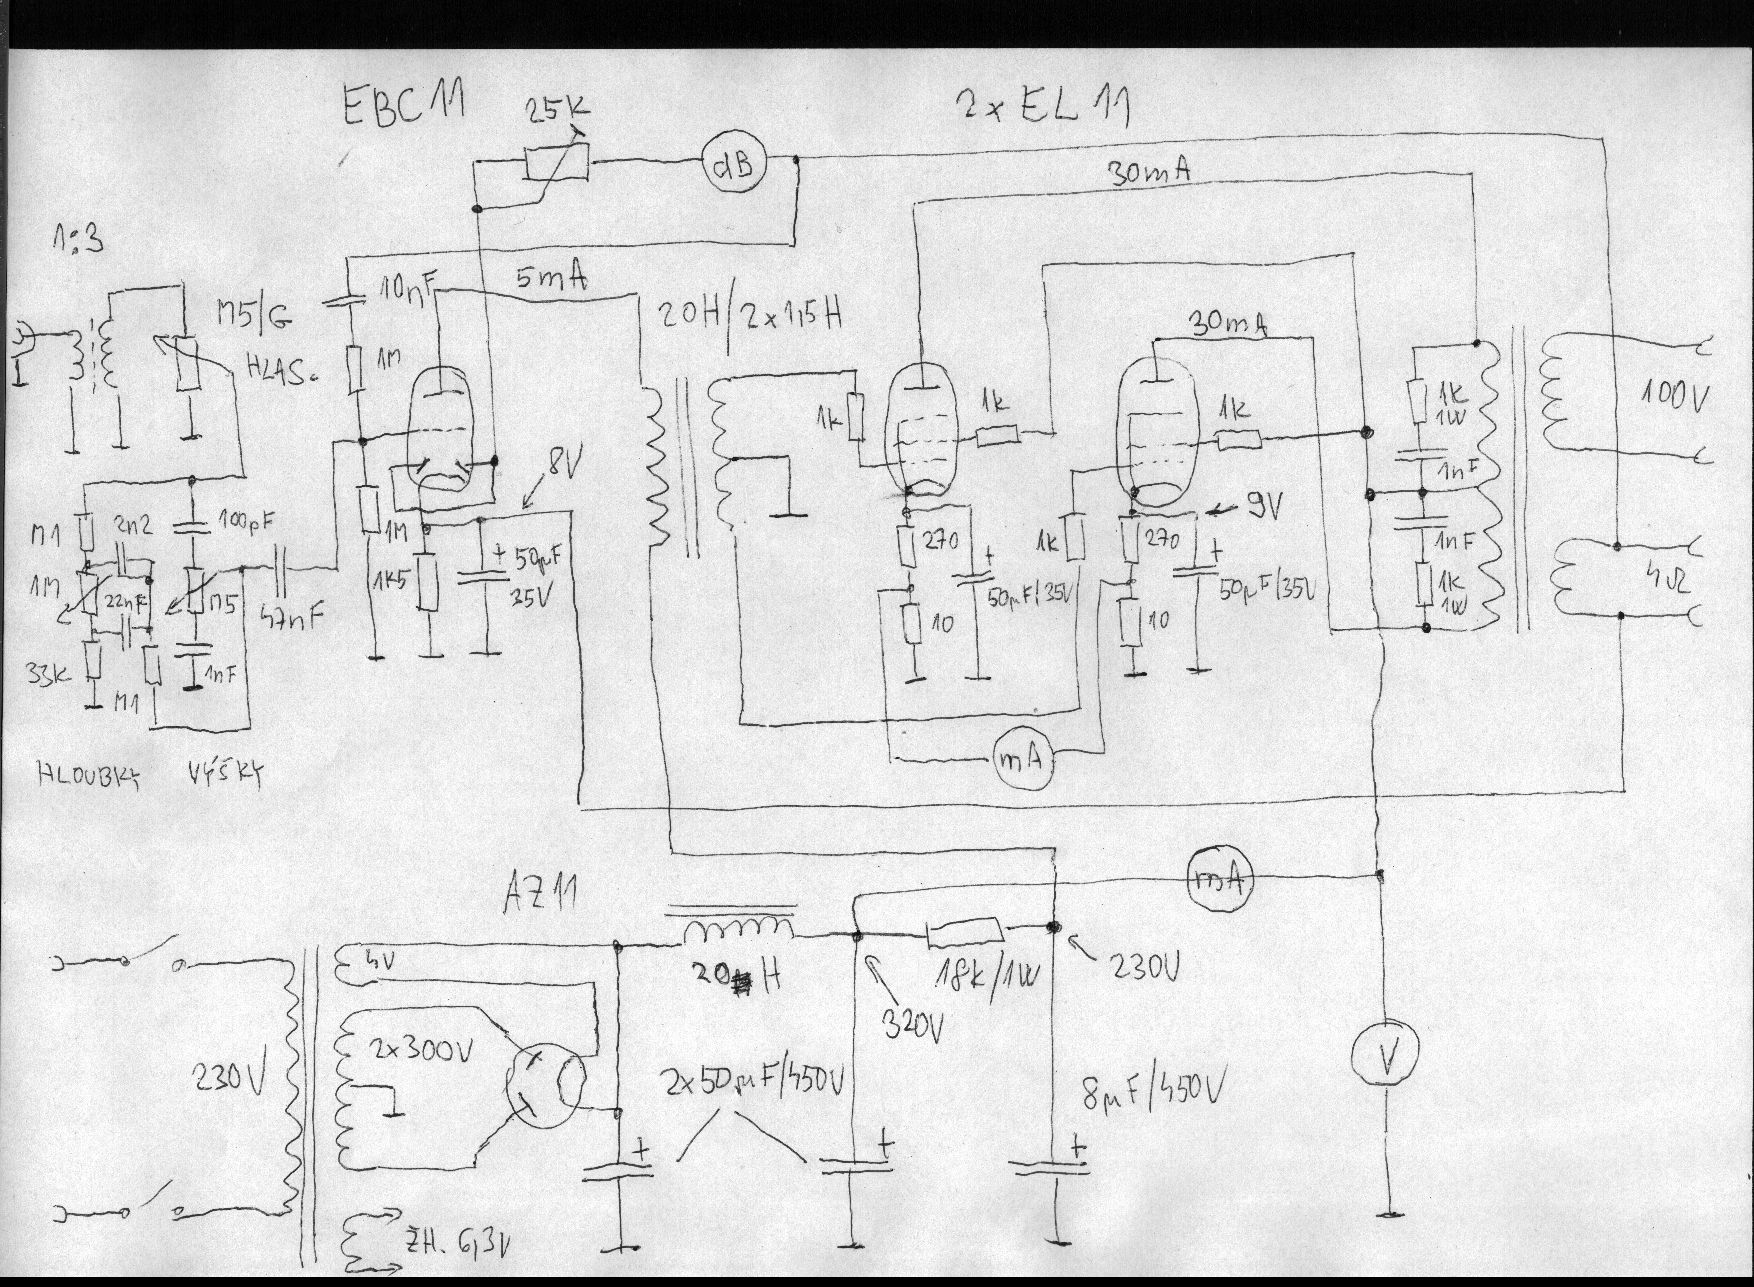 EBC 11
25K
2x EL 11
dB
30mA
1:3
10nF
5mA
M5/G
HLAS.
20H/2x1,5H
30mA
1M
1k
1k
1k
100V
1k
1W
1nF
8V
M1
2n2
100pF
1M
9V
1M
22nF
M5
47nF
1K5
+
50µF
35V
270
+
50µF/35V
1k
270
+
50µF/35V
1nF
1k
1W
4Ω
33K
M1
1nF
10
10
HLOUBKY
VÝŠKY
mA
AZ11
mA
4V
20 H
18k/1W
230V
320V
230V
2x300V
2x50µF/450V
V
8µF/450V
+
+
+
ŽH. 6,3V